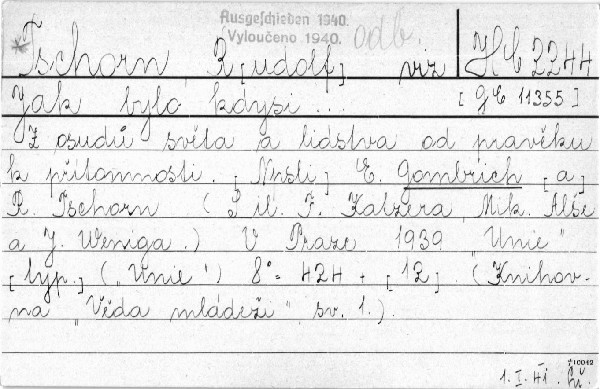 Ausgeschieden 1940.
Vyloučeno 1940. odb.
*Tschorn, R[udolf] viz HC 2244
Jak bylo kdysi... [gE 11355]
Z osudů světa a lidstva od pravěku
k přítomnosti. [Napsali] E. Gombrich [a]
R. Tschorn (S il. F. Katzera, Mik. Alše
a J. Weniga.) V Praze 1939 "Unie"
[typ.] („Unie") 8° 424 + [12]. (Knihov-
na „Věda mládeži", sv. 1.).
#10042
1. I. 41.